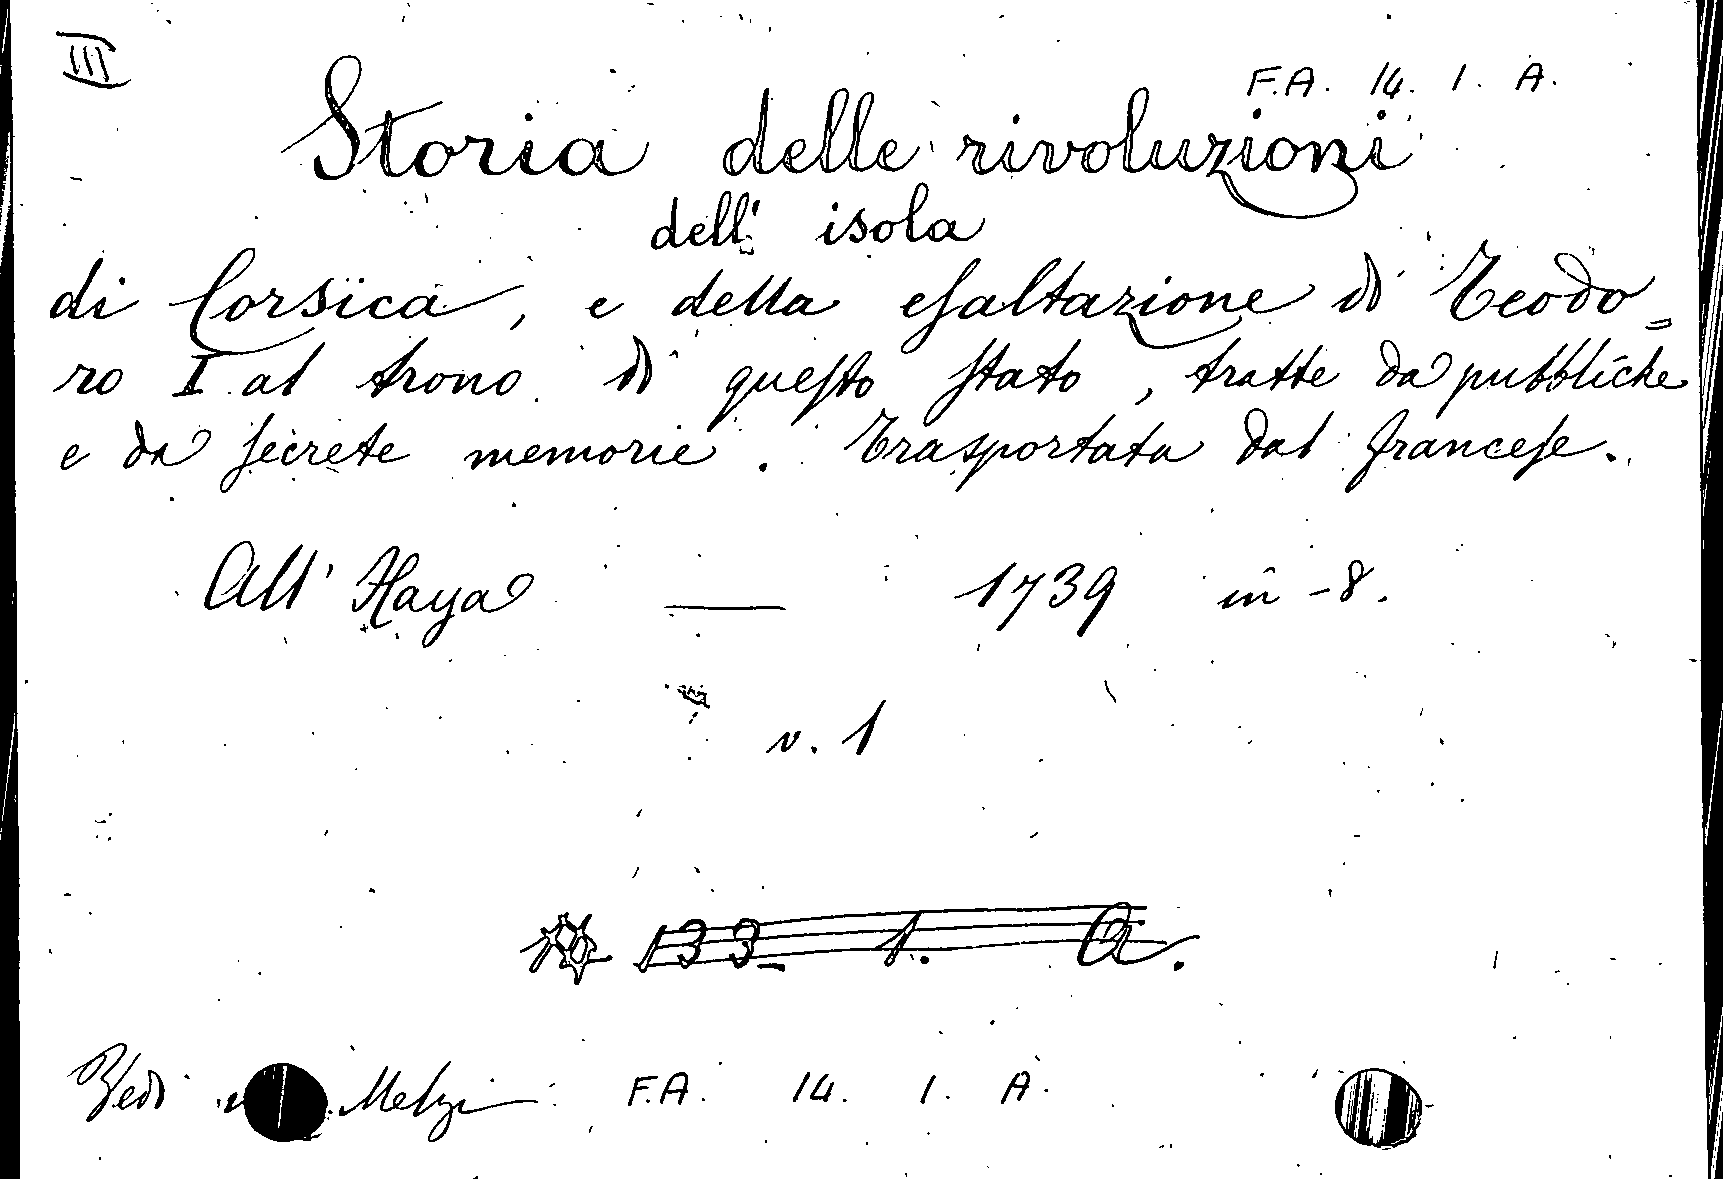 III
F.A. 14. 1. A.
Storia delle rivoluzioni
dell' isola
di Corsica, e della esaltazione di Teodo=
ro I al trono di questo stato, tratte da pubbliche
e da secrete memorie. Trasportata dal francese.
All' Haya — 1739 in-8.
v. 1
133- 1. A.
Vedi Melzi F.A. 14. 1. A.